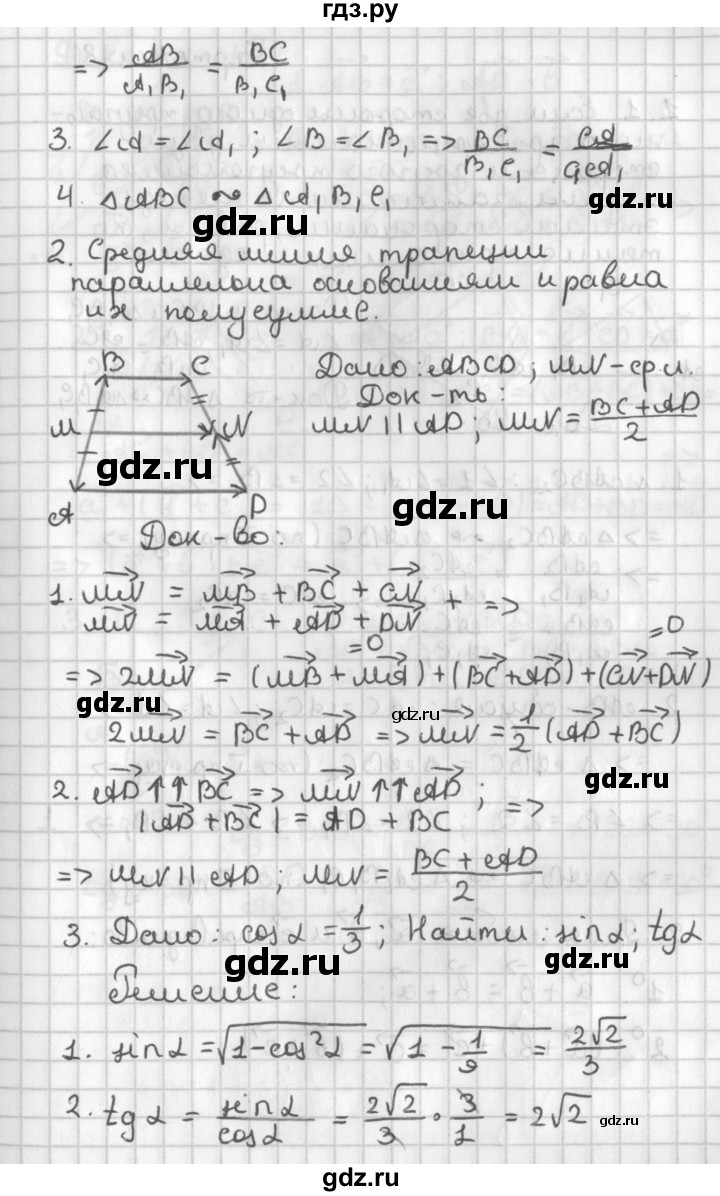 гдз.ру
=> AB/A₁B₁ = BC/B₁C₁
3. ∠A = ∠A₁ ; ∠B = ∠B₁ => BC/B₁C₁ = CA/C₁A₁
4. △ABC ~ △A₁B₁C₁
gdz.ru
gdz.ru
2. Средняя линия трапеции
параллельна основаниям и равна
их полусумме.
B C
M N
A D
Дано: ABCD ; MN – ср.л.
Док-ть:
MN || AD ; MN = BC + AD/2
gdz.ru
gdz.ru
Док-во:
1. MN = MB + BC + CN
MN = MA + AD + DN + =>
=0 =0
=> 2MN = (MB + MA) + (BC + AD) + (CN + DN)
gdz.ru
gdz.ru
2MN = BC + AD => MN = 1/2 (AD + BC)
2. AD ↑↑ BC => MN ↑↑ AD ; =>
|AD + BC| = AD + BC
=> MN || AD ; MN = BC + AD/2
3. Дано: cos α = 1/3 ; Найти: sin α ; tg α
gdz.ru
gdz.ru
Решение:
1. sin α = √1 – cos² α = √1 – 1/9 = 2√2/3
2. tg α = sin α/cos α = 2√2/3 · 3/1 = 2√2
gdz.ru
gdz.ru
gdz.ru